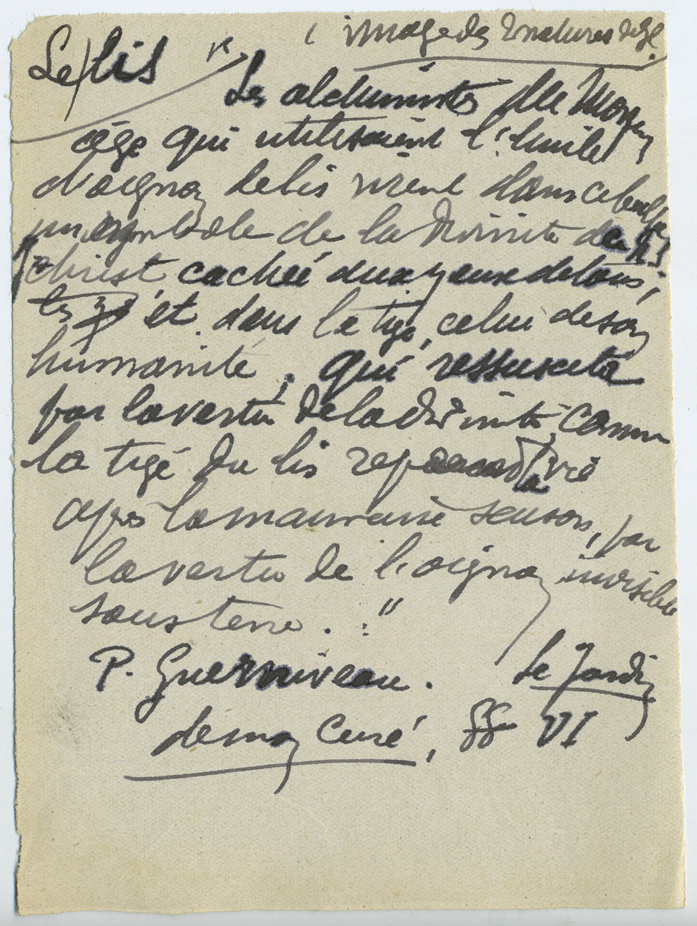 ( image des 2 natures de
Le lis
Les alchimistes du Moyen
âge qui utilisaient l'huile
d'oignon de lis virent dans ce bulbe
un symbole de la divinité de J.
Christ cachée aux yeux de tous,
et dans la tige, celui de son
humanité, qui ressuscita
par la vertu de la divinité, comme
la tige du lis
après la mauvaise saison, par
la vertu de l'oignon invisible
sous terre."
P. Guerniveau. Le Jardin
de mon Curé, VI